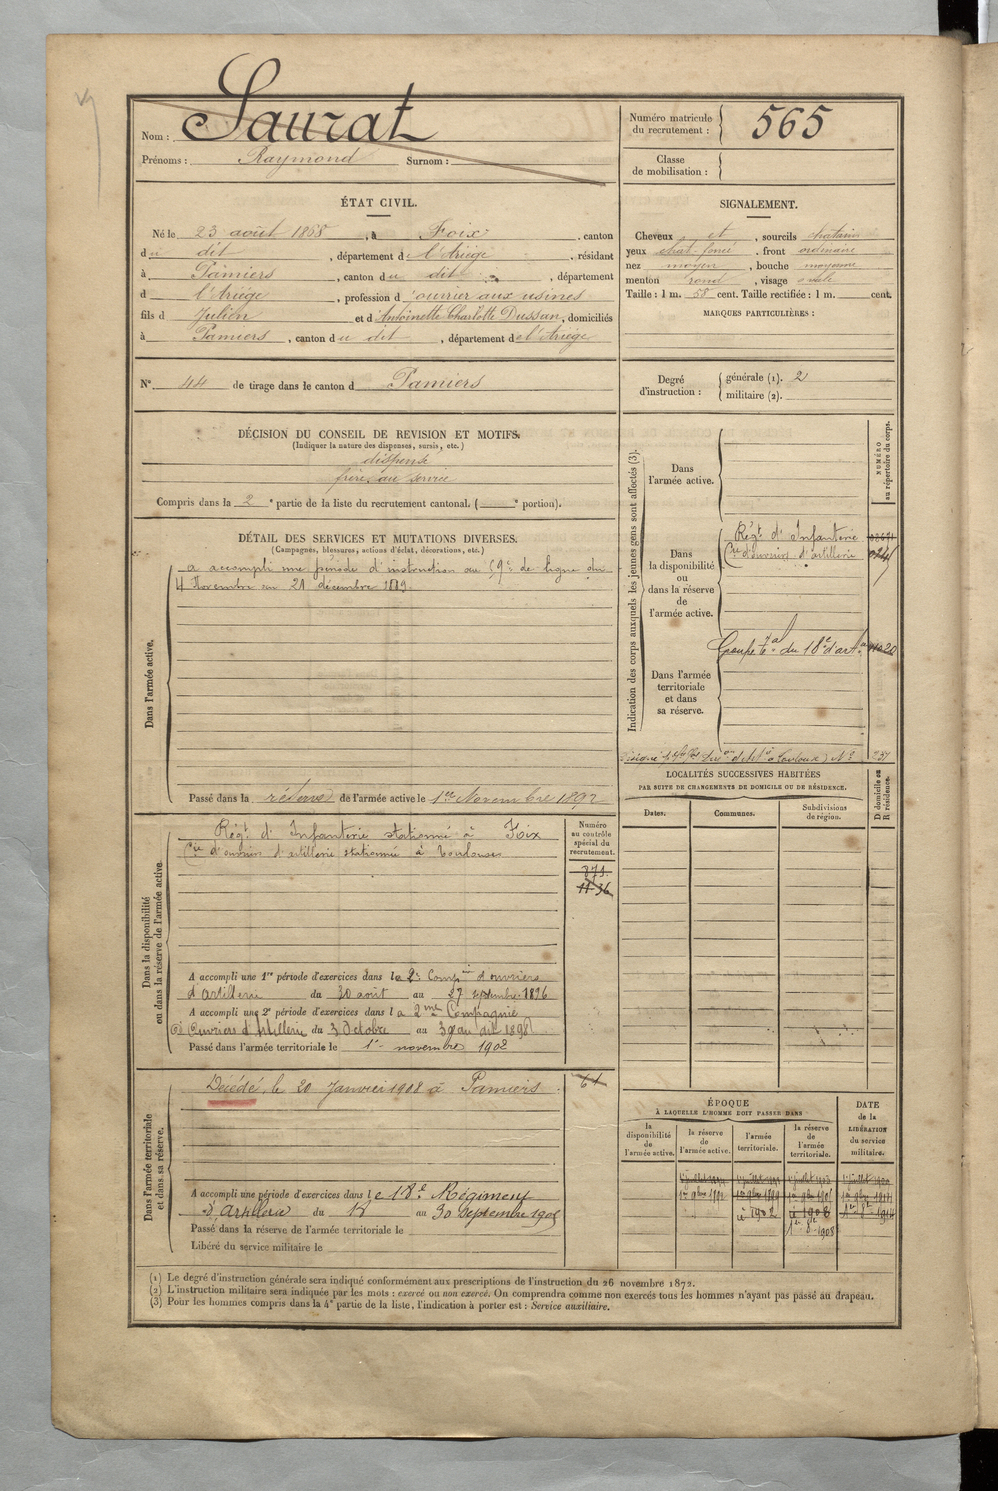 Nom : Saurat
Prénoms : Raymond Surnom :
Numéro matricule du recrutement : 565
Classe de mobilisation :
ÉTAT CIVIL.
Né le 23 août 1868, à Foix, canton
du dit, département de l'Ariège, résidant
à Pamiers, canton du dit, département
d l'Ariège, profession d'ouvrier aux usines
fils d Julien et d'Antoinette Charlotte Dussan, domiciliés
à Pamiers, canton du dit, département de l'Ariège
SIGNALEMENT.
Cheveux et, sourcils chatain
yeux chat. foncé, front ordinaire
nez moyen, bouche moyenne
menton rond, visage ovale
Taille : 1 m. 58 cent. Taille rectifiée : 1 m. cent.
MARQUES PARTICULIÈRES :
N° 44 de tirage dans le canton d Pamiers
Degré d'instruction : générale (1). 2
militaire (2).
DÉCISION DU CONSEIL DE REVISION ET MOTIFS.
(Indiquer la nature des dispenses, sursis, etc.)
dispensé
frère au service
Compris dans la 2e partie de la liste du recrutement cantonal. ( e portion).
DÉTAIL DES SERVICES ET MUTATIONS DIVERSES.
(Campagnes, blessures, actions d'éclat, décorations, etc.)
Dans l'armée active.
a accompli une période d'instruction au 59e de ligne du
4 Novembre au 21 décembre 1889.
Passé dans la réserve de l'armée active le 1er Novembre 1892
Indication des corps auxquels les jeunes gens sont affectés (3).
NUMÉRO au répertoire du corps.
Dans l'armée active.
Dans la disponibilité ou dans la réserve de l'armée active.
Régt d'Infanterie
Cie d'ouvriers d'artillerie
Dans l'armée territoriale et dans sa réserve.
Groupe tal du 18e d'arte
LOCALITÉS SUCCESSIVES HABITÉES
PAR SUITE DE CHANGEMENTS DE DOMICILE OU DE RÉSIDENCE.
Dates. Communes. Subdivisions de région. D domicile ou R résidence.
Dans la disponibilité ou dans la réserve de l'armée active.
Numéro au contrôle spécial du recrutement.
Régt d'Infanterie stationné à Foix
Cie d'ouvriers d'artillerie stationnée à Toulouse
871.
1136
A accompli une 1re période d'exercices dans la 2e Compie d'ouvriers
d'artillerie du 30 août au 27 septembre 1896
A accompli une 2e période d'exercices dans la 2me Compagnie
d'Ouvriers d'Artillerie du 3 Octobre au 30 au dit 1898
Passé dans l'armée territoriale le 1er novembre 1902
Dans l'armée territoriale et dans sa réserve.
Décédé le 20 Janvier 1908 à Pamiers
61
A accompli une période d'exercices dans le 18e Régiment
d'Artillerie du 18 au 30 Septembre 1905
Passé dans la réserve de l'armée territoriale le
Libéré du service militaire le
ÉPOQUE
À LAQUELLE L'HOMME DOIT PASSER DANS
la disponibilité de l'armée active.
la réserve de l'armée active.
l'armée territoriale.
la réserve de l'armée territoriale.
DATE de la LIBÉRATION du service militaire.
(1) Le degré d'instruction générale sera indiqué conformément aux prescriptions de l'instruction du 26 novembre 1872.
(2) L'instruction militaire sera indiquée par les mots : exercé ou non exercé. On comprendra comme non exercés tous les hommes n'ayant pas passé au drapeau.
(3) Pour les hommes compris dans la 4e partie de la liste, l'indication à porter est : Service auxiliaire.